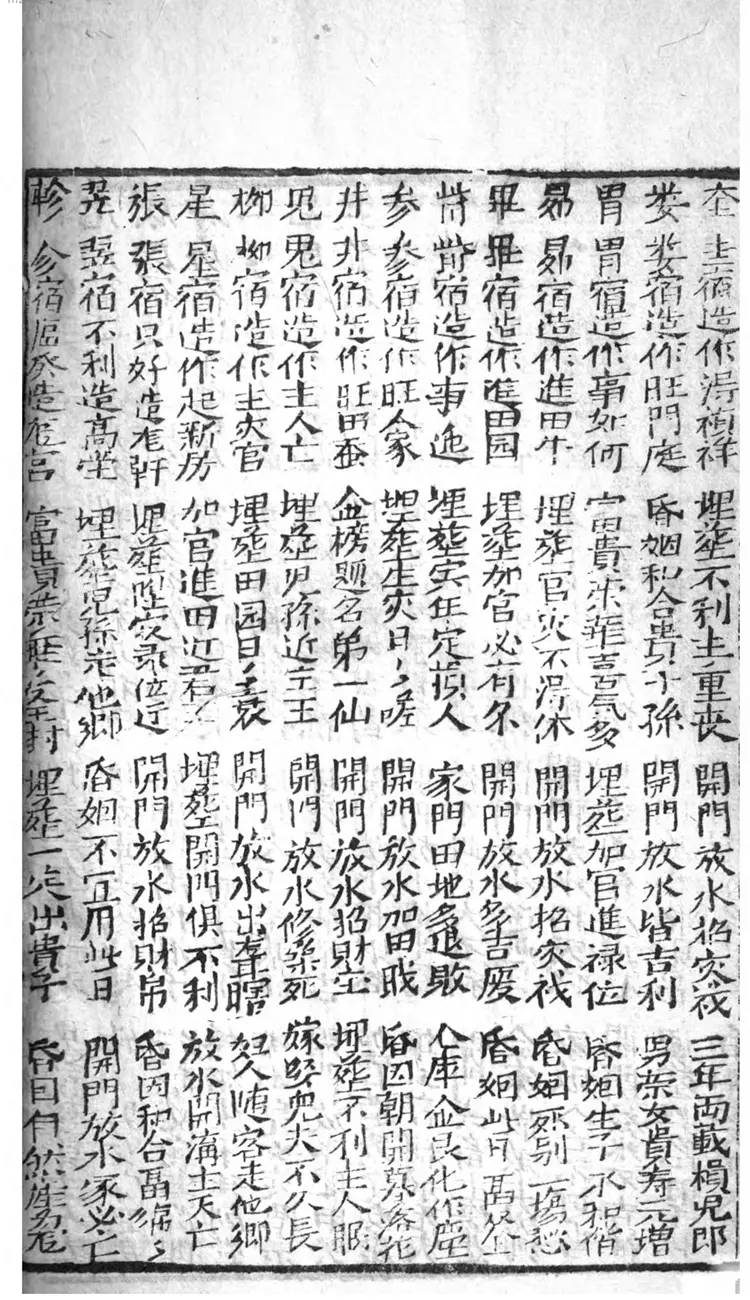 奎 奎宿造作得禎祥 埋葬不利主重丧 開門放水招灾伐 三年両載損児郎
娄 娄宿造作旺門庭 昏姻和合貴子孫 開門放水皆吉利 男荣女貴寿元增
胃 胃宿造作事如何 富貴荣華喜氣多 埋葬加官進禄位 昏姻生子永和偕
昴 昴宿造作進田牛 埋葬官灾不得休 開門放水招灾伐 昏姻死别一場愁
畢 畢宿造作進田园 埋葬加官必有尔 開門放水多吉庆 昏姻此日
觜 觜宿造作事 埋葬灾年定損人 家門田地多退敗 仓库金艮化作塵
参 参宿造作旺人家 埋葬生灾日〻嗟 開門放水加田戝 昏因朝開暮落花
井 井宿造作旺田蚕 金榜题名弟一仙 開門放水招財宝 埋葬不利主人眼
鬼 鬼宿造作主人亡 埋葬児孫近王 開門放水修築死 嫁娶児夫不久長
柳 柳宿造作主灾官 埋葬田园日〻衰 開門放水出聋瞎 妇人随客走他鄉
星 星宿造作起新房 加官進田近君王 埋葬開門俱不利 放水開溝主夭亡
張 張宿只好造龙軒 埋葬陞官禄位近 開門放水招財帛 昏因和合畐綿〻
翌 翌宿不利造高堂 埋葬児孫走他鄉 昏姻不宜用此日 開門放水家必亡
軫 宿造龙宮 富貴荣 埋葬一定出貴子 昏因自然